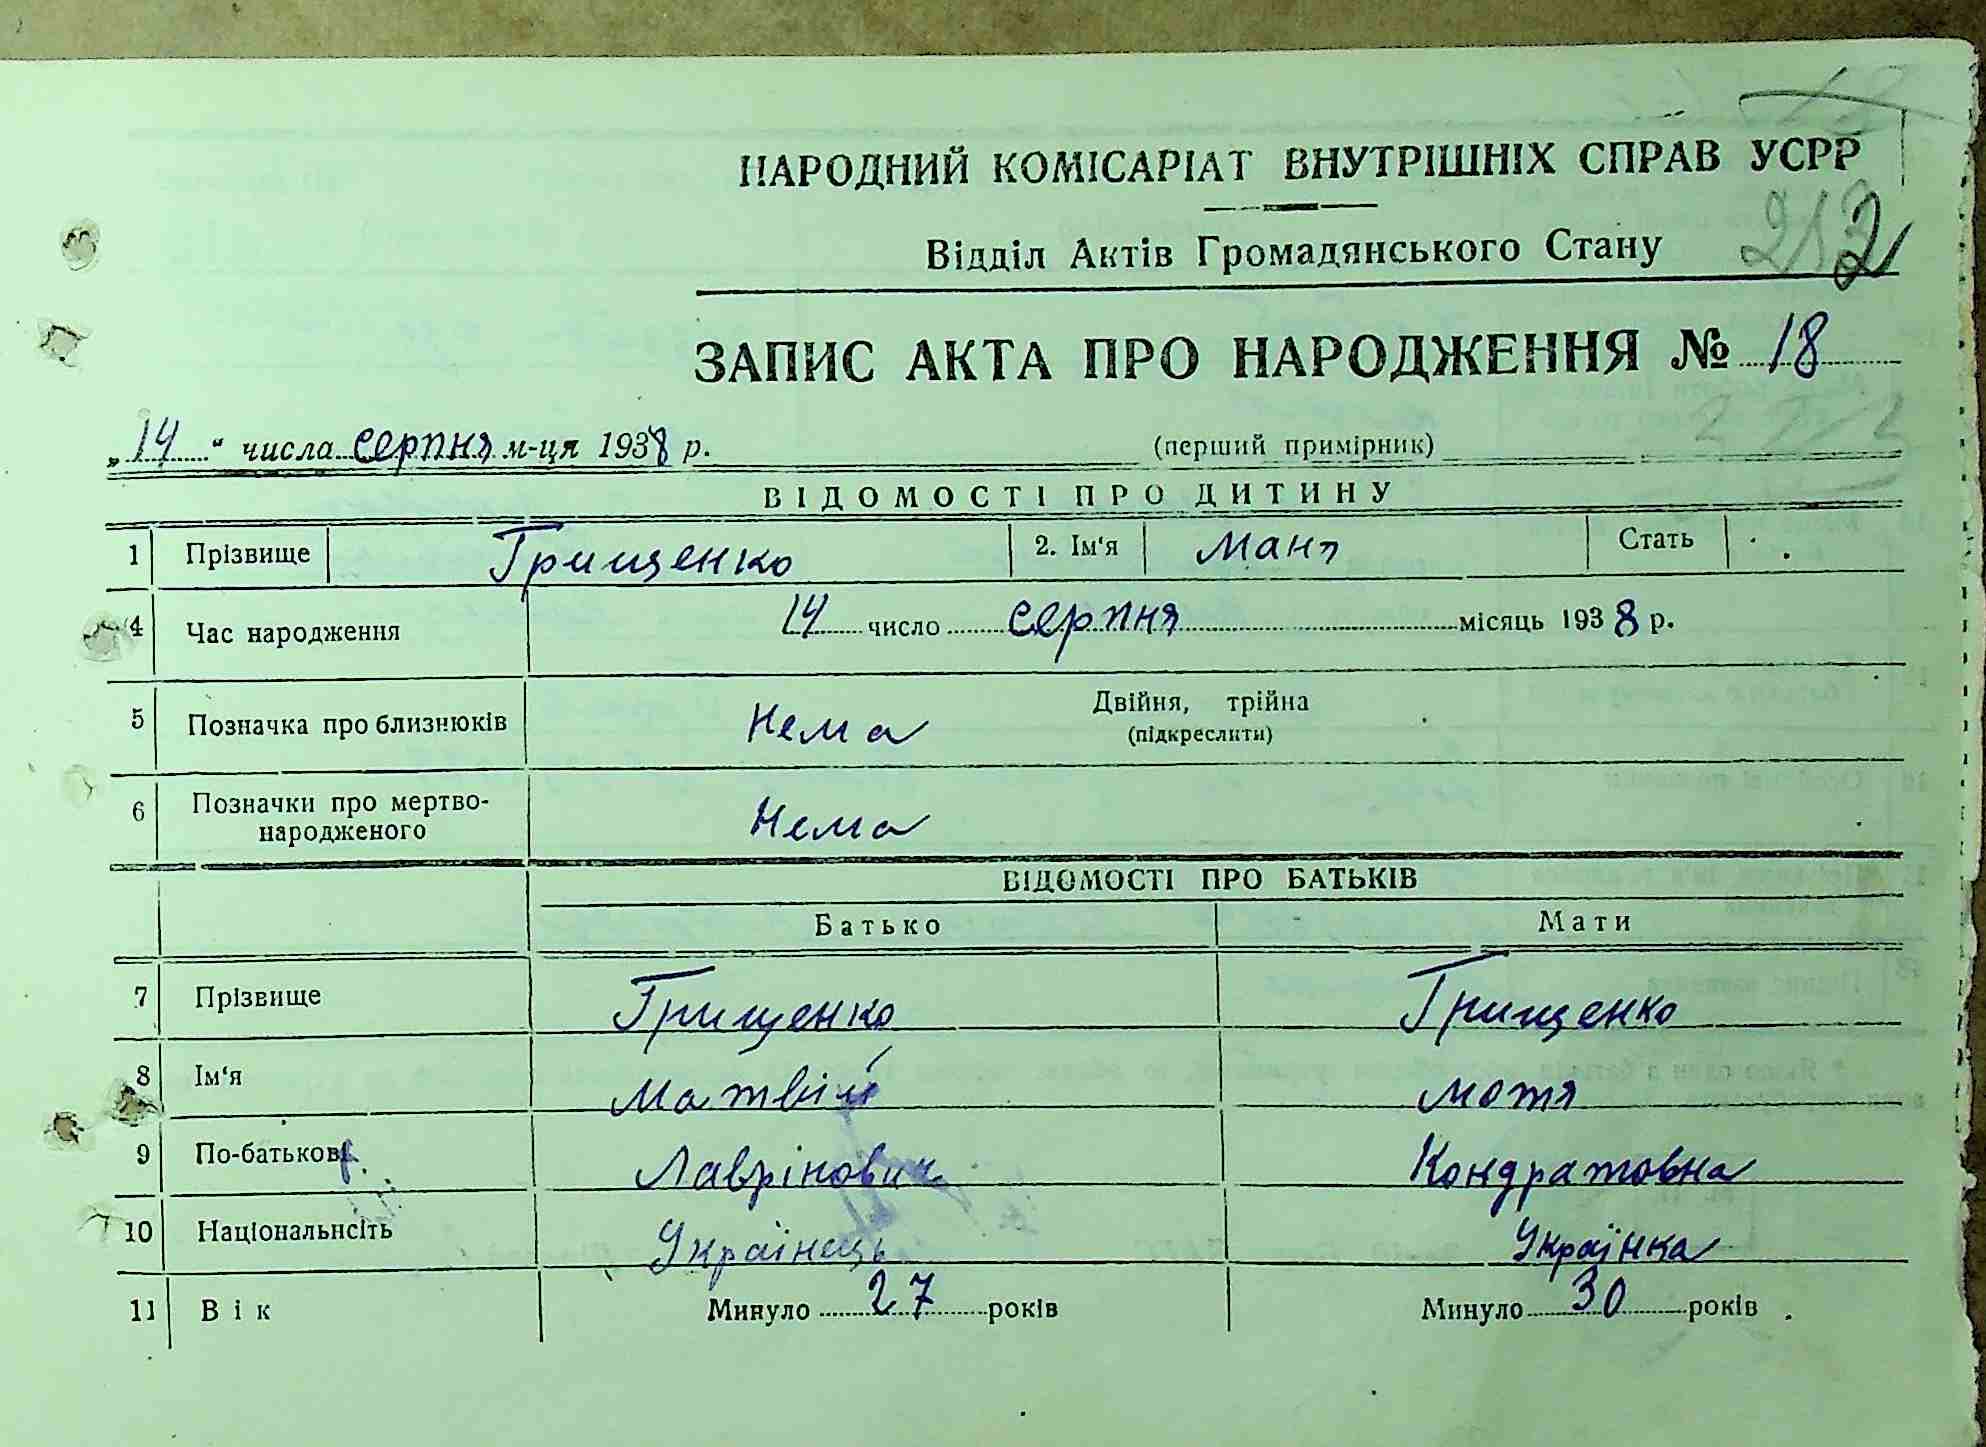 НАРОДНИЙ КОМІСАРІАТ ВНУТРІШНІХ СПРАВ УСРР
Відділ Актів Громадянського Стану
212
ЗАПИС АКТА ПРО НАРОДЖЕННЯ № 18
„14“ числа серпня м-ця 1938 р. (перший примірник)
ВІДОМОСТІ ПРО ДИТИНУ
1 Прізвище Грищенко 2. Ім'я Маня Стать
4 Час народження 14 число серпня місяць 1938 р.
5 Позначка про близнюків Нема Двійня, трійна
(підкреслити)
6 Позначки про мертво-
народженого Нема
ВІДОМОСТІ ПРО БАТЬКІВ
Батько Мати
7 Прізвище Грищенко Грищенко
8 Ім'я Матвій Мотя
9 По-батькові Лаврінович Кондратовна
10 Національнсіть Українець Українка
11 Вік Минуло 27 років Минуло 30 років